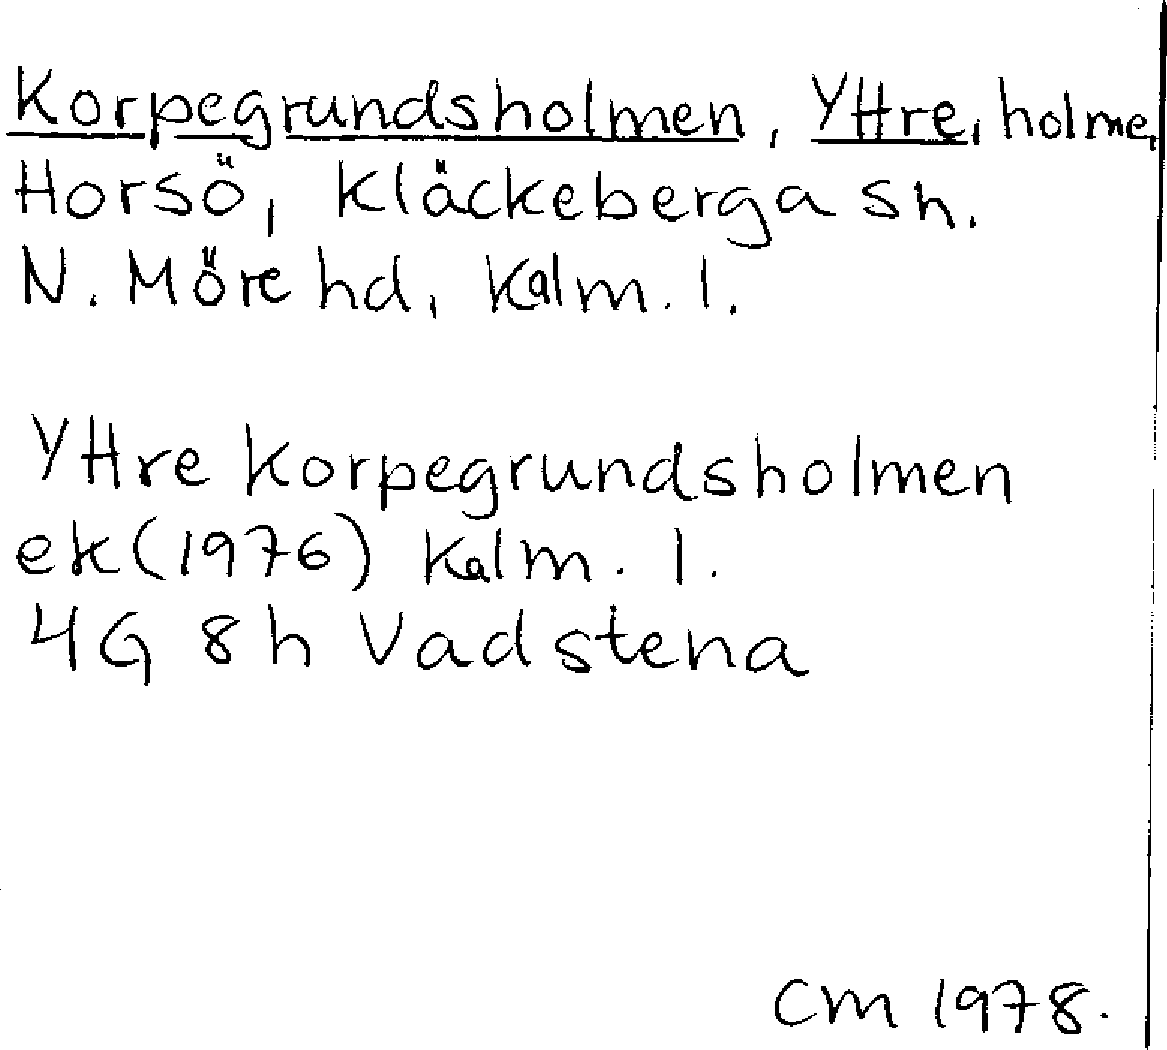 Korpegrundsholmen, Yttre, holme,
Horsö, Kläckeberga sn.
N. Möre hd, Kalm. l.
Yttre Korpegrundsholmen
ek (1976) Kalm. l.
4G 8h Vadstena
CM 1978.